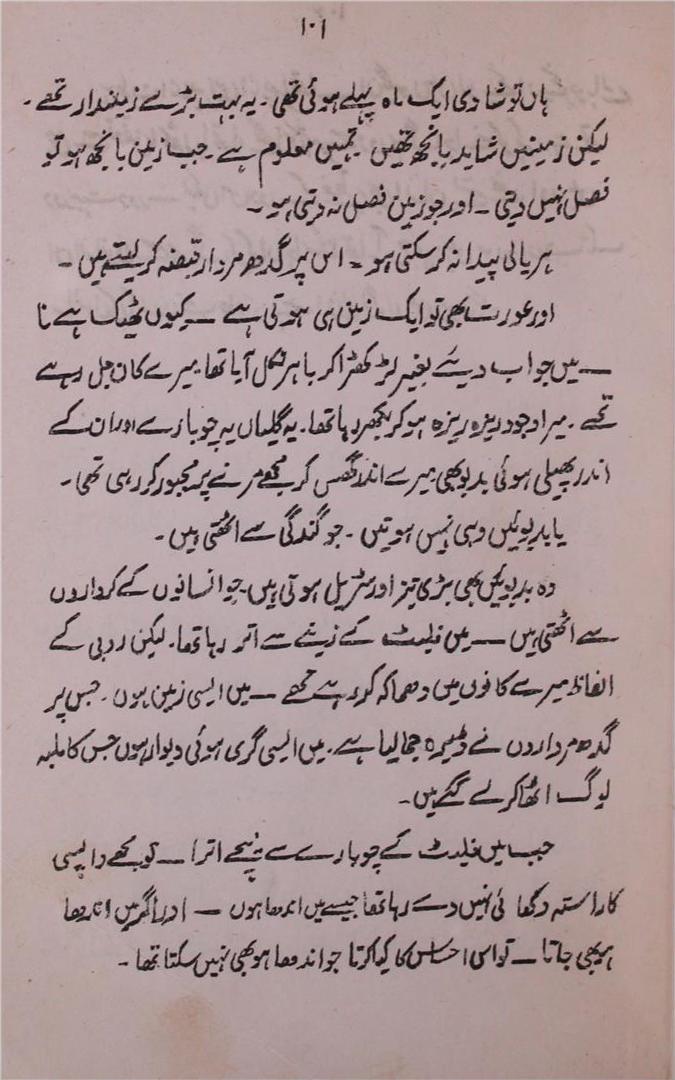 ۱۰۱
ہاں تو شادی ایک ماہ پہلے ہوئی تھی ۔ یہ بہت بڑے زمیندار تھے ۔
لیکن زمینیں شاید بانجھ تھیں ۔ تمہیں معلوم ہے ۔ جب زمین بانجھ ہو تو
فصل نہیں دیتی ۔ اور جو زمین فصل نہ دیتی ہو ۔
ہریالی پیدا نہ کر سکتی ہو ۔ اس پر گدھ مردار قبضہ کر لیتے ہیں ۔
اور عورت بھی تو ایک زمین ہی ہوتی ہے ــ کیوں ٹھیک ہے نا
ــ میں جواب دیئے بغیر لڑکھڑا کر باہر نکل آیا تھا میرے کان جل رہے
تھے ۔ میرا وجود ریزہ ریزہ ہو کر بکھر رہا تھا ۔ یہ گلیاں یہ چوبارے اور ان کے
اندر پھیلی ہوئی بدبو بھی میرے اندر گھس کر مجھے مرنے پر مجبور کر رہی تھی ۔
یا بدبوئیں وہی نہیں ہوتیں ۔ جو گندگی سے اٹھتی ہیں ۔
وہ بدبوئیں بھی بڑی تیز اور سٹریل ہوتی ہیں ۔ جو انسانوں کے کرداروں
سے اٹھتی ہیں ــ میں فلیٹ کے زینے سے اتر رہا تھا ۔ لیکن روبی کے
الفاظ میرے کانوں میں دھماکہ کر رہے تھے ــ میں ایسی زمین ہوں ۔ جس پر
گدھ مرداروں نے ڈیرہ جما لیا ہے ۔ میں ایسی گری ہوئی دیوار ہوں جس کا ملبہ
لوگ اٹھا کر لے گئے ہیں ۔
جب میں فلیٹ کے چوبارے سے نیچے اترا ــ تو مجھے واپسی
کا راستہ دکھائی نہیں دے رہا تھا جیسے میں اندھا ہوں ــ اور اگر میں اندھا
ہو بھی جاتا ــ تو اس احساس کا کیا کرتا جو اندھا ہو بھی نہیں سکتا تھا ۔